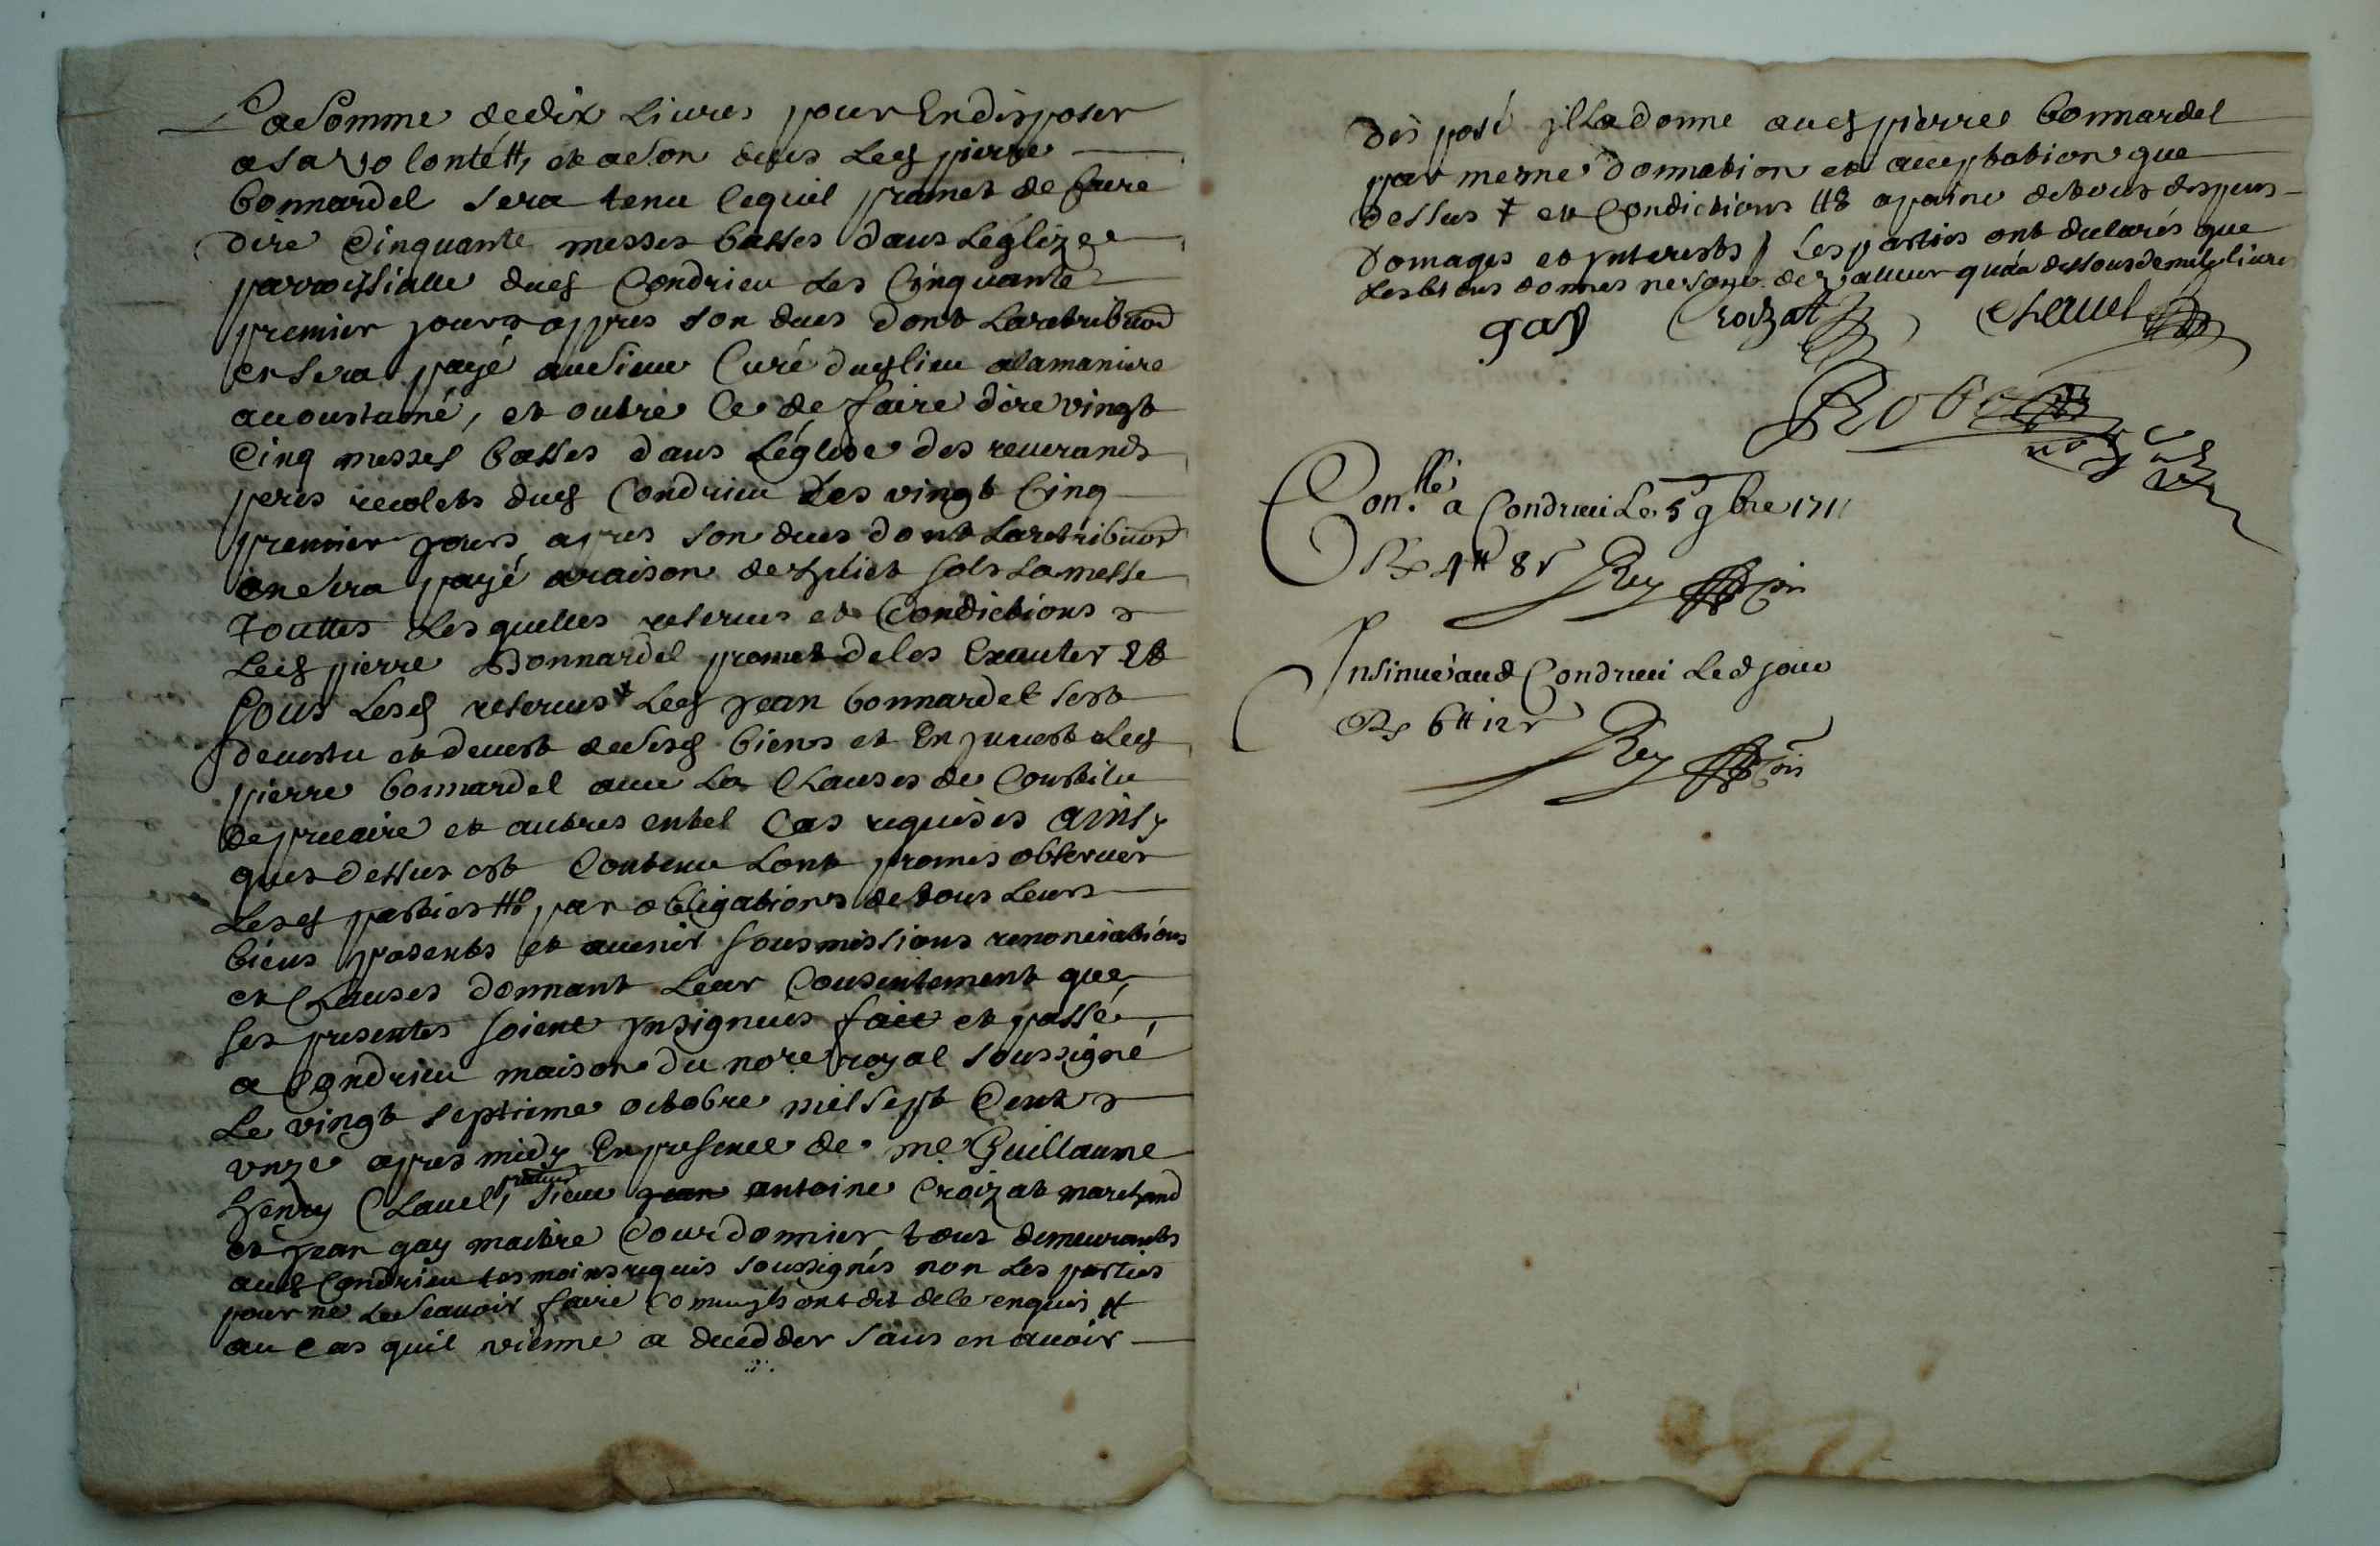 La somme de dix livres pour En disposer
a sa volonté tt, et a son deces Led pierre
bonnardel sera tenu lequel promet de faire
dire Cinquante messes basses dans Leglize
parroissialle dud Condrieu Les Cinquante
premier jours appres son deces dont La retribuon
en sera payé au sieur Curé dud lieu a la maniere
accoustumé, et outre Ce de faire dire vingt
Cinq messes basses dans Léglise des reverands
peres recolets dud Condrieu Les vingt Cinq
premier jours apres son deces dont La retribuon
en sera payé a raison de sols La messe
Touttes Lesquelles reserves et Condictions
Led pierre Bonnardel promet de les Executer Et
sous Lesd reserves + Led jean bonnardel sest
devestu et devest de sesd biens et En juvest Led
pierre bonnardel avec Les Clauses de Constitu
de precaire et autres en tel Cas requises ainsy
que dessus est Contenu Lont promis observer
Lesd parties par obligations de tous Leurs
biens presents et avenir sousmissions renonciations
et Clauses donnant Leur Consentement que
ses presentes soient ynsignues fait et passé
a Condrieu maison du nore royal soussigné
Le vingt septieme octobre mil sept Cents
unze apres midy En presence de me Guillaume
henry Clavel, sieur jean antoine Croizat marchand
et jean gay maitre Courdonnier tous demeurants
aud Condrieu tesmoins requis soussignés non Les parties
pour ne Le scavoir faire Comme ils ont dit de le enquis tt
au Cas quil vienne a decedder sans en avoir
disposé jl La donne aud pierre bonnardel
par mesme donnation et acceptation que
dessus + et Condictions a paine de tous despens
domages et ynterests Les parties ont declarés que
Les biens donnes ne sont de valleur qu'au dessous de mil livres
gay Croizat Clavel
Rob
Conllé a Condrieu Le 5 9bre 1711
R 4tt 8s Rey
Insinué aud Condrieu Led jour
R 6tt 12s
Rey